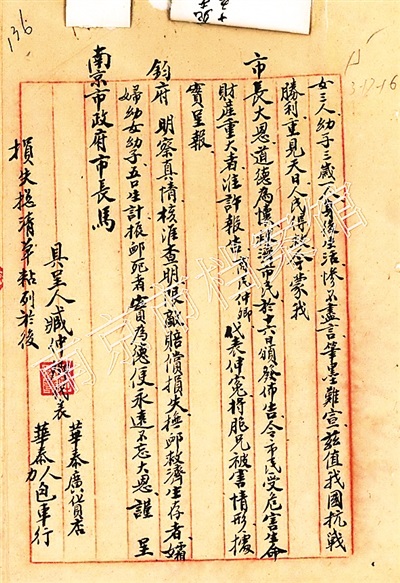 136
3-12-16
女三人幼子三歲一人事後生活慘不盡言筆墨難宣茲值我國抗戰
勝利重見天日人民得救今蒙我
市長大恩道德為懷濟市民於十六日頒發佈告令市民受危害生命
財產重大者准許報告商民仲卿代表伸冤將胞兄被害情形據
實呈報
鈞府 明察真情核准查明限敵賠償損失撫卹救濟生存者孀
婦幼女幼子五口生計振卹死者實為德便永遠不忘大恩謹 呈
南京市政府市長馬
具呈人臧仲卿代表
華泰廣貨店
華泰人力包車行
損失總清單粘列於後
南京市档案馆